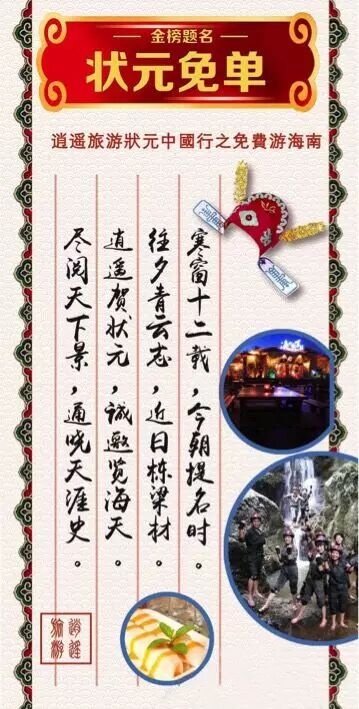 金榜题名
状元免单
逍遥旅游狀元中國行之免費游海南
寒窗十二载，今朝提名时。
往夕青云志，近日栋梁材。
逍遥贺状元，诚邀览海天。
尽阅天下景，通晓天涯史。
逍遥
旅游